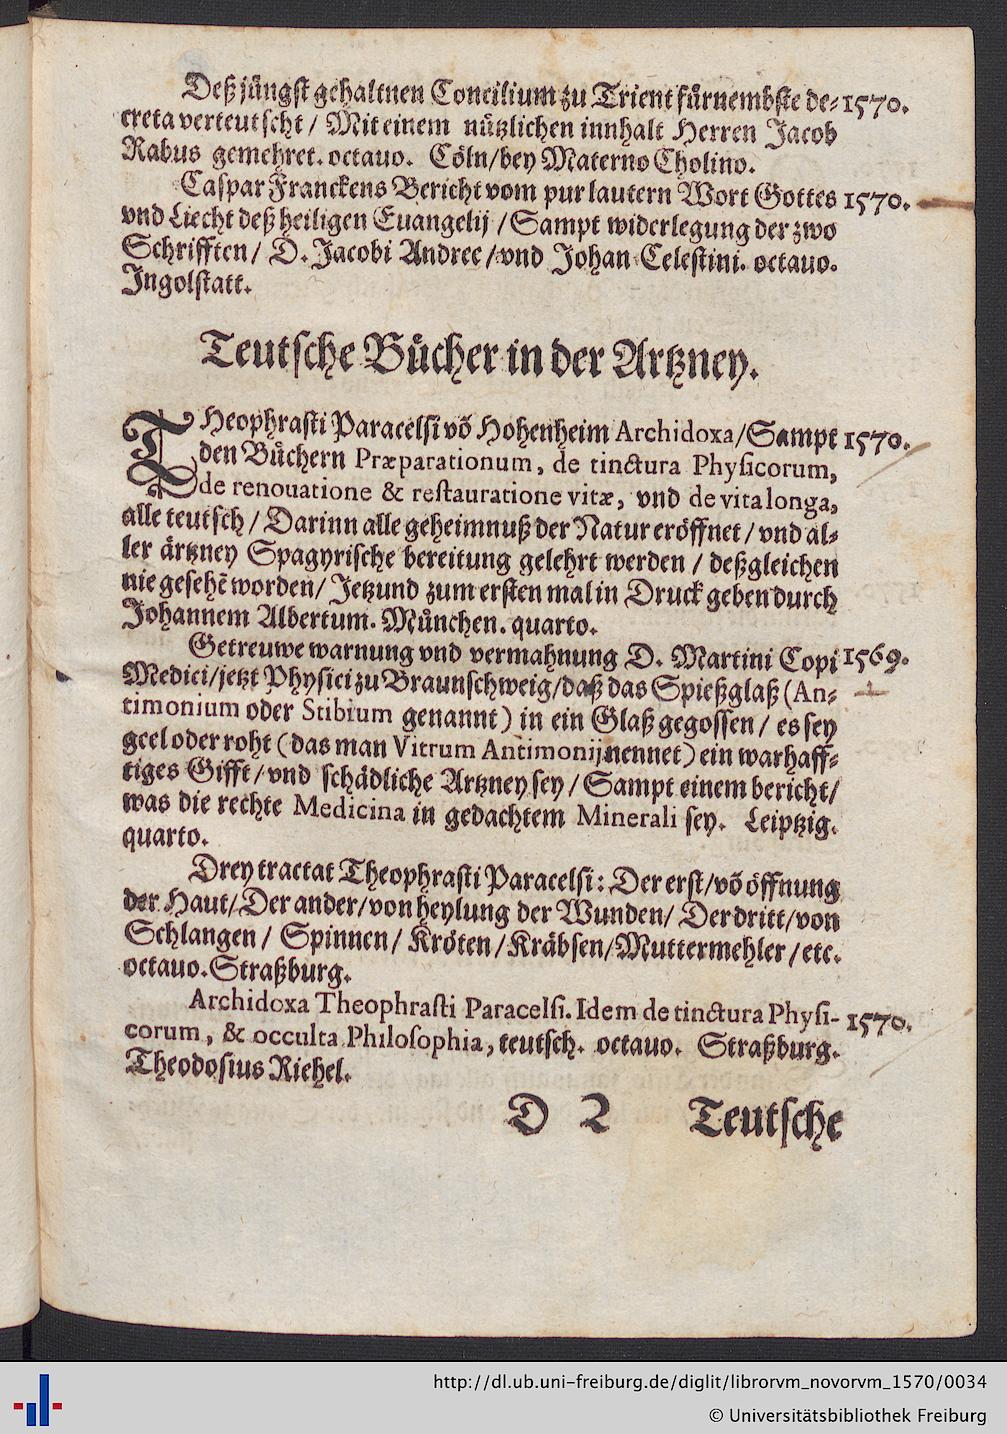 Deß jüngst gehaltnen Concilium zu Trient fürnembste de= 1570.
creta verteutscht / Mit einem nützlichen innhalt Herren Jacob
Rabus gemehret. octauo. Cöln/bey Materno Cholino.
Caspar Franckens Bericht vom pur lautern Wort Gottes 1570.
vnd Liecht deß heiligen Euangelij / Sampt widerlegung der zwo
Schrifften / D. Jacobi Andree / vnd Johan Celestini. octauo.
Ingolstatt.
Teutsche Bücher in der Artzney.
THeophrasti Paracelsi võ Hohenheim Archidoxa/Sampt 1570.
den Büchern Præparationum, de tinctura Physicorum,
de renouatione & restauratione vitæ, vnd de vita longa,
alle teutsch / Darinn alle geheimnuß der Natur eröffnet / vnd al=
ler ärtzney Spagyrische bereitung gelehrt werden / deßgleichen
nie gesehẽ worden/ Jetzund zum ersten mal in Druck geben durch
Johannem Albertum. München. quarto.
Getreuwe warnung vnd vermahnung D. Martini Copi 1569.
Medici/jetzt Physici zu Braunschweig/daß das Spießglaß (An=
timonium oder Stibium genannt) in ein Glaß gegossen / es sey
geel oder roht (das man Vitrum Antimonij nennet) ein warhaff=
tiges Gifft/vnd schädliche Artzney sey / Sampt einem bericht/
was die rechte Medicina in gedachtem Minerali sey. Leiptzig.
quarto.
Drey tractat Theophrasti Paracelsi: Der erst/võ öffnung
der Haut/Der ander/von heylung der Wunden/ Der dritt/von
Schlangen / Spinnen/ Kröten/Kräbsen/Muttermehler / etc.
octauo. Straßburg.
Archidoxa Theophrasti Paracelsi. Idem de tinctura Physi- 1570.
corum, & occulta Philosophia, teutsch. octauo. Straßburg.
Theodosius Riehel.
D 2 Teutsche
http://dl.ub.uni-freiburg.de/diglit/librorvm_novorvm_1570/0034
© Universitätsbibliothek Freiburg